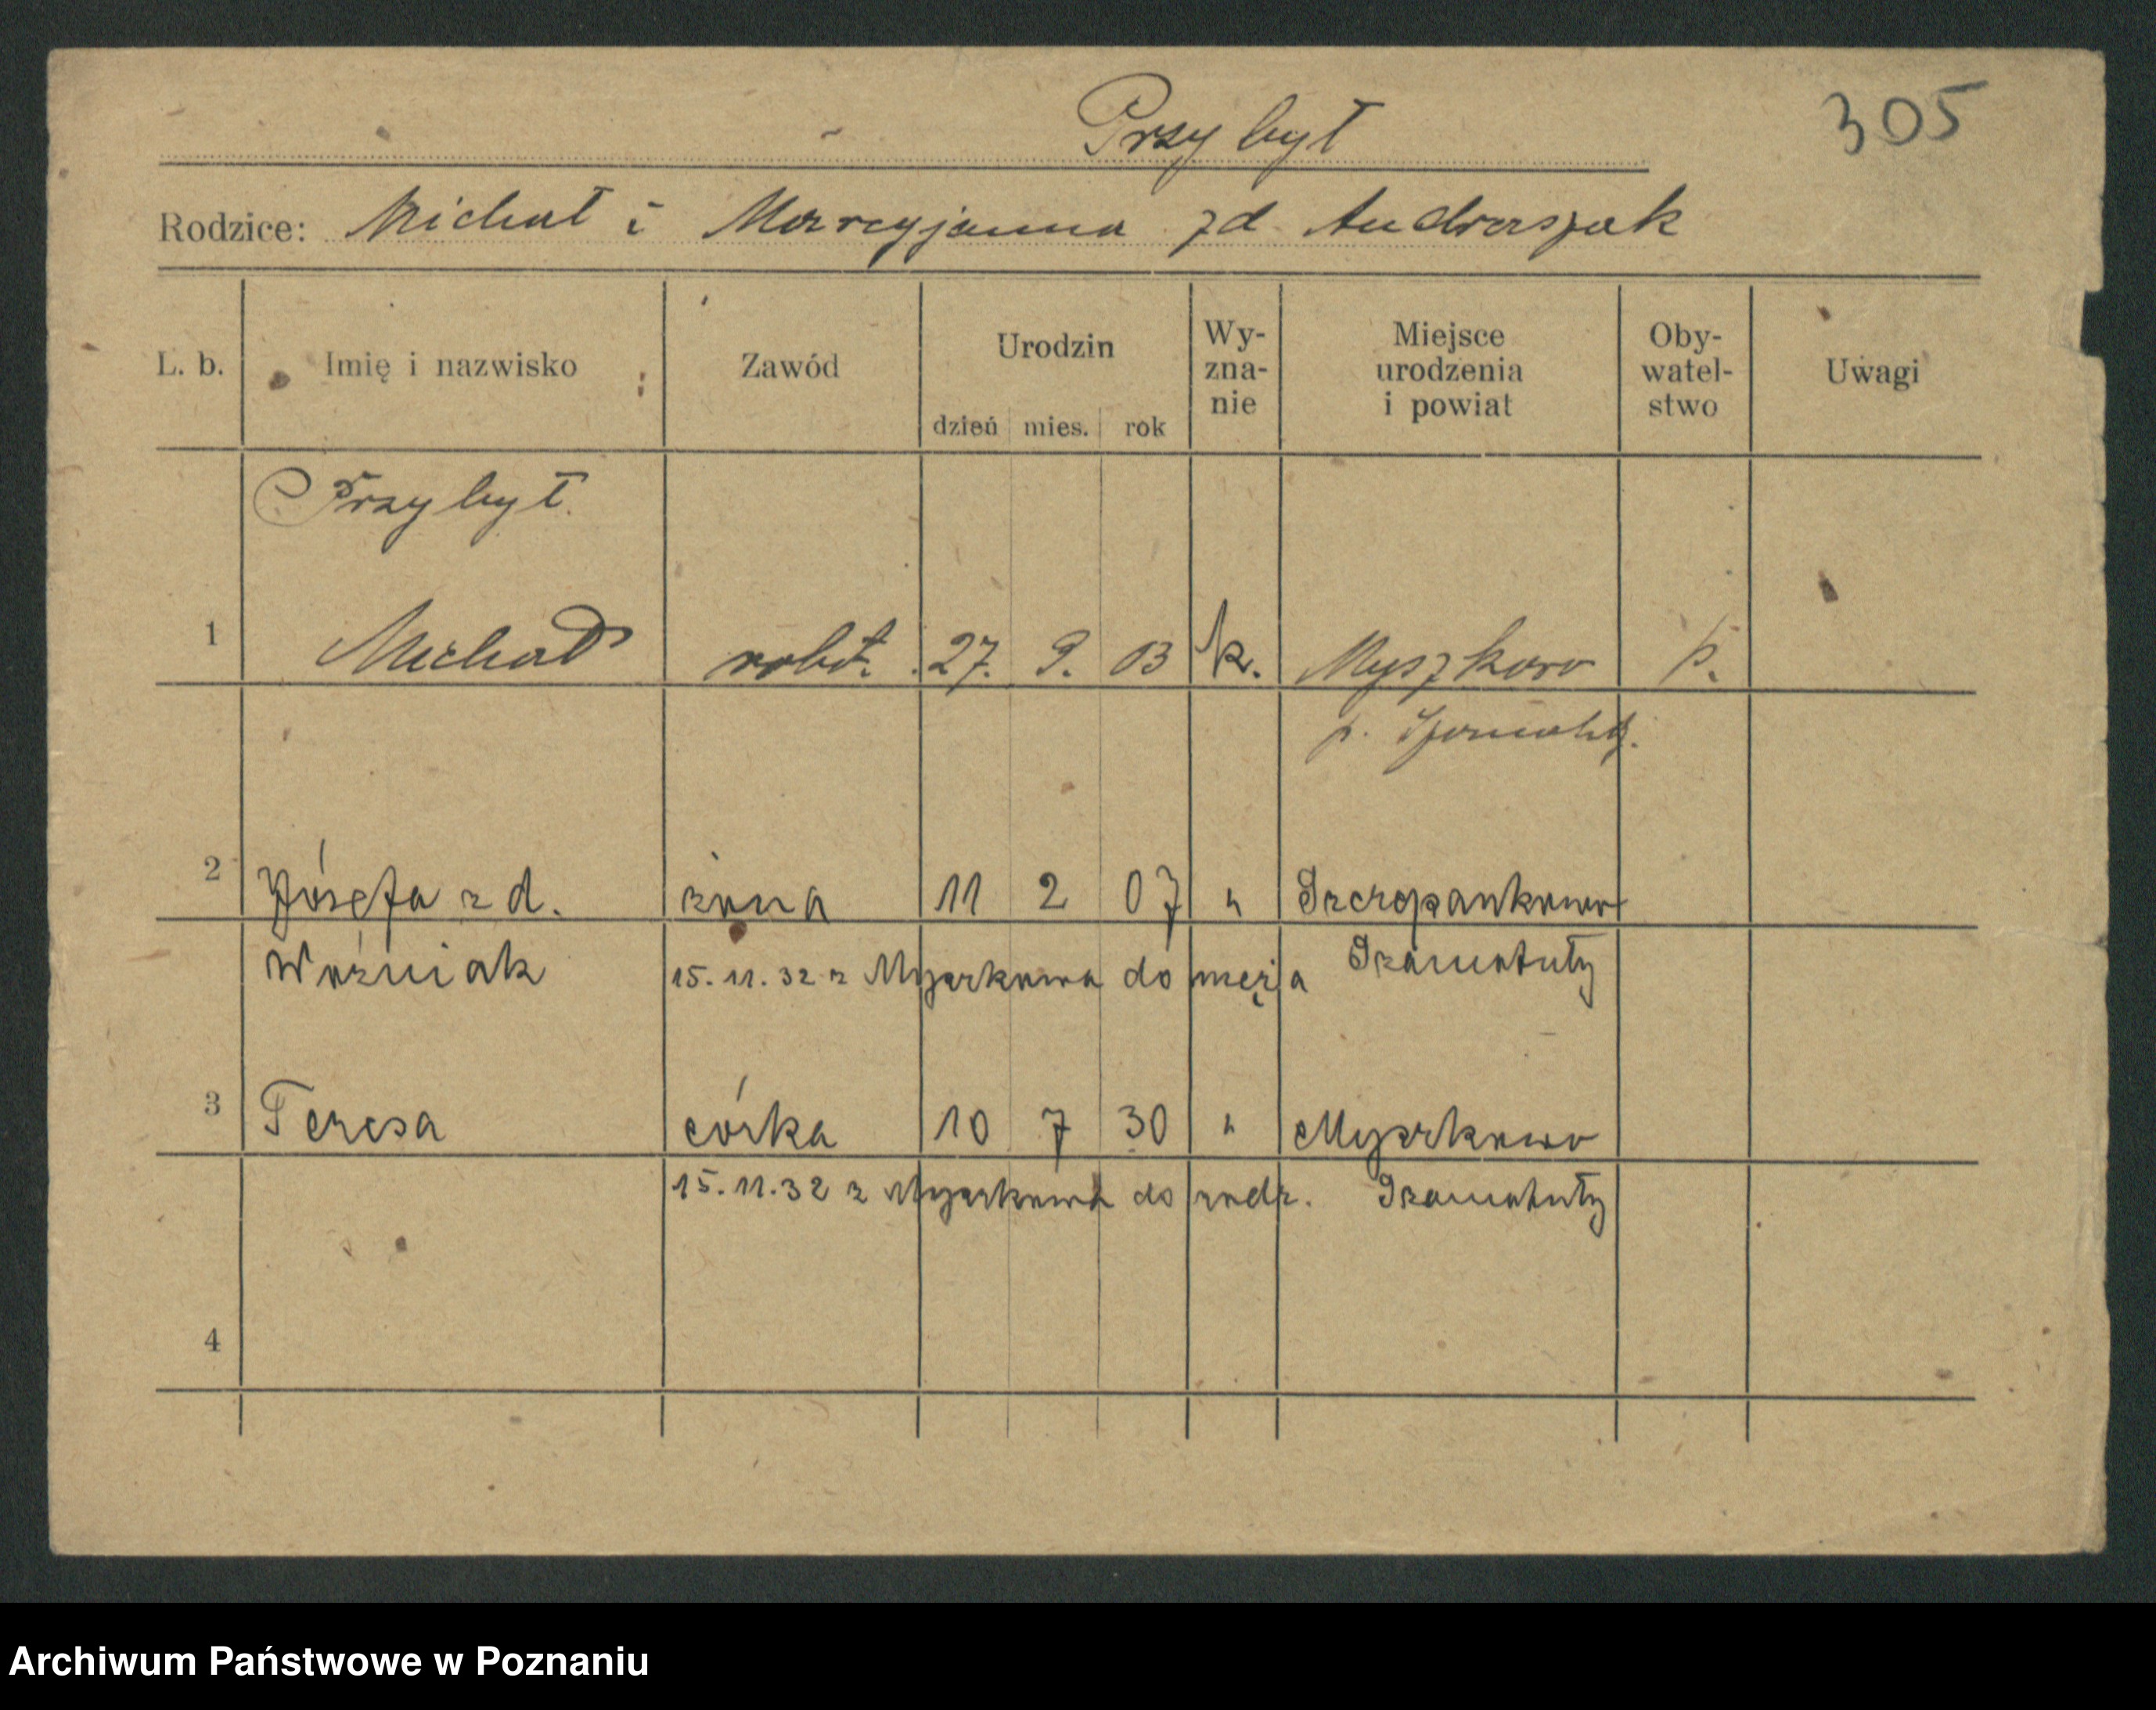 Przybył
305
Rodzice: Michał i Marcyjanna zd. Andrzaszak
L. b. Imię i nazwisko Zawód Urodzin dzień mies. rok Wy-zna-nie Miejsce urodzenia i powiat Oby-watel-stwo Uwagi
Przybył.
1 Michał robot. 27. 9. 03 k. Myszkowo p.
p. Szamotuły.
2 Józefa z d. żona 11 2 07 " Szczepankowo
Woźniak 15.11.32 z Myszkowa do męża Szamotuły
3 Teresa córka 10 7 30 " Myszkowo
15.11.32 z Myszkowa do rodz. Szamotuły
4
Archiwum Państwowe w Poznaniu